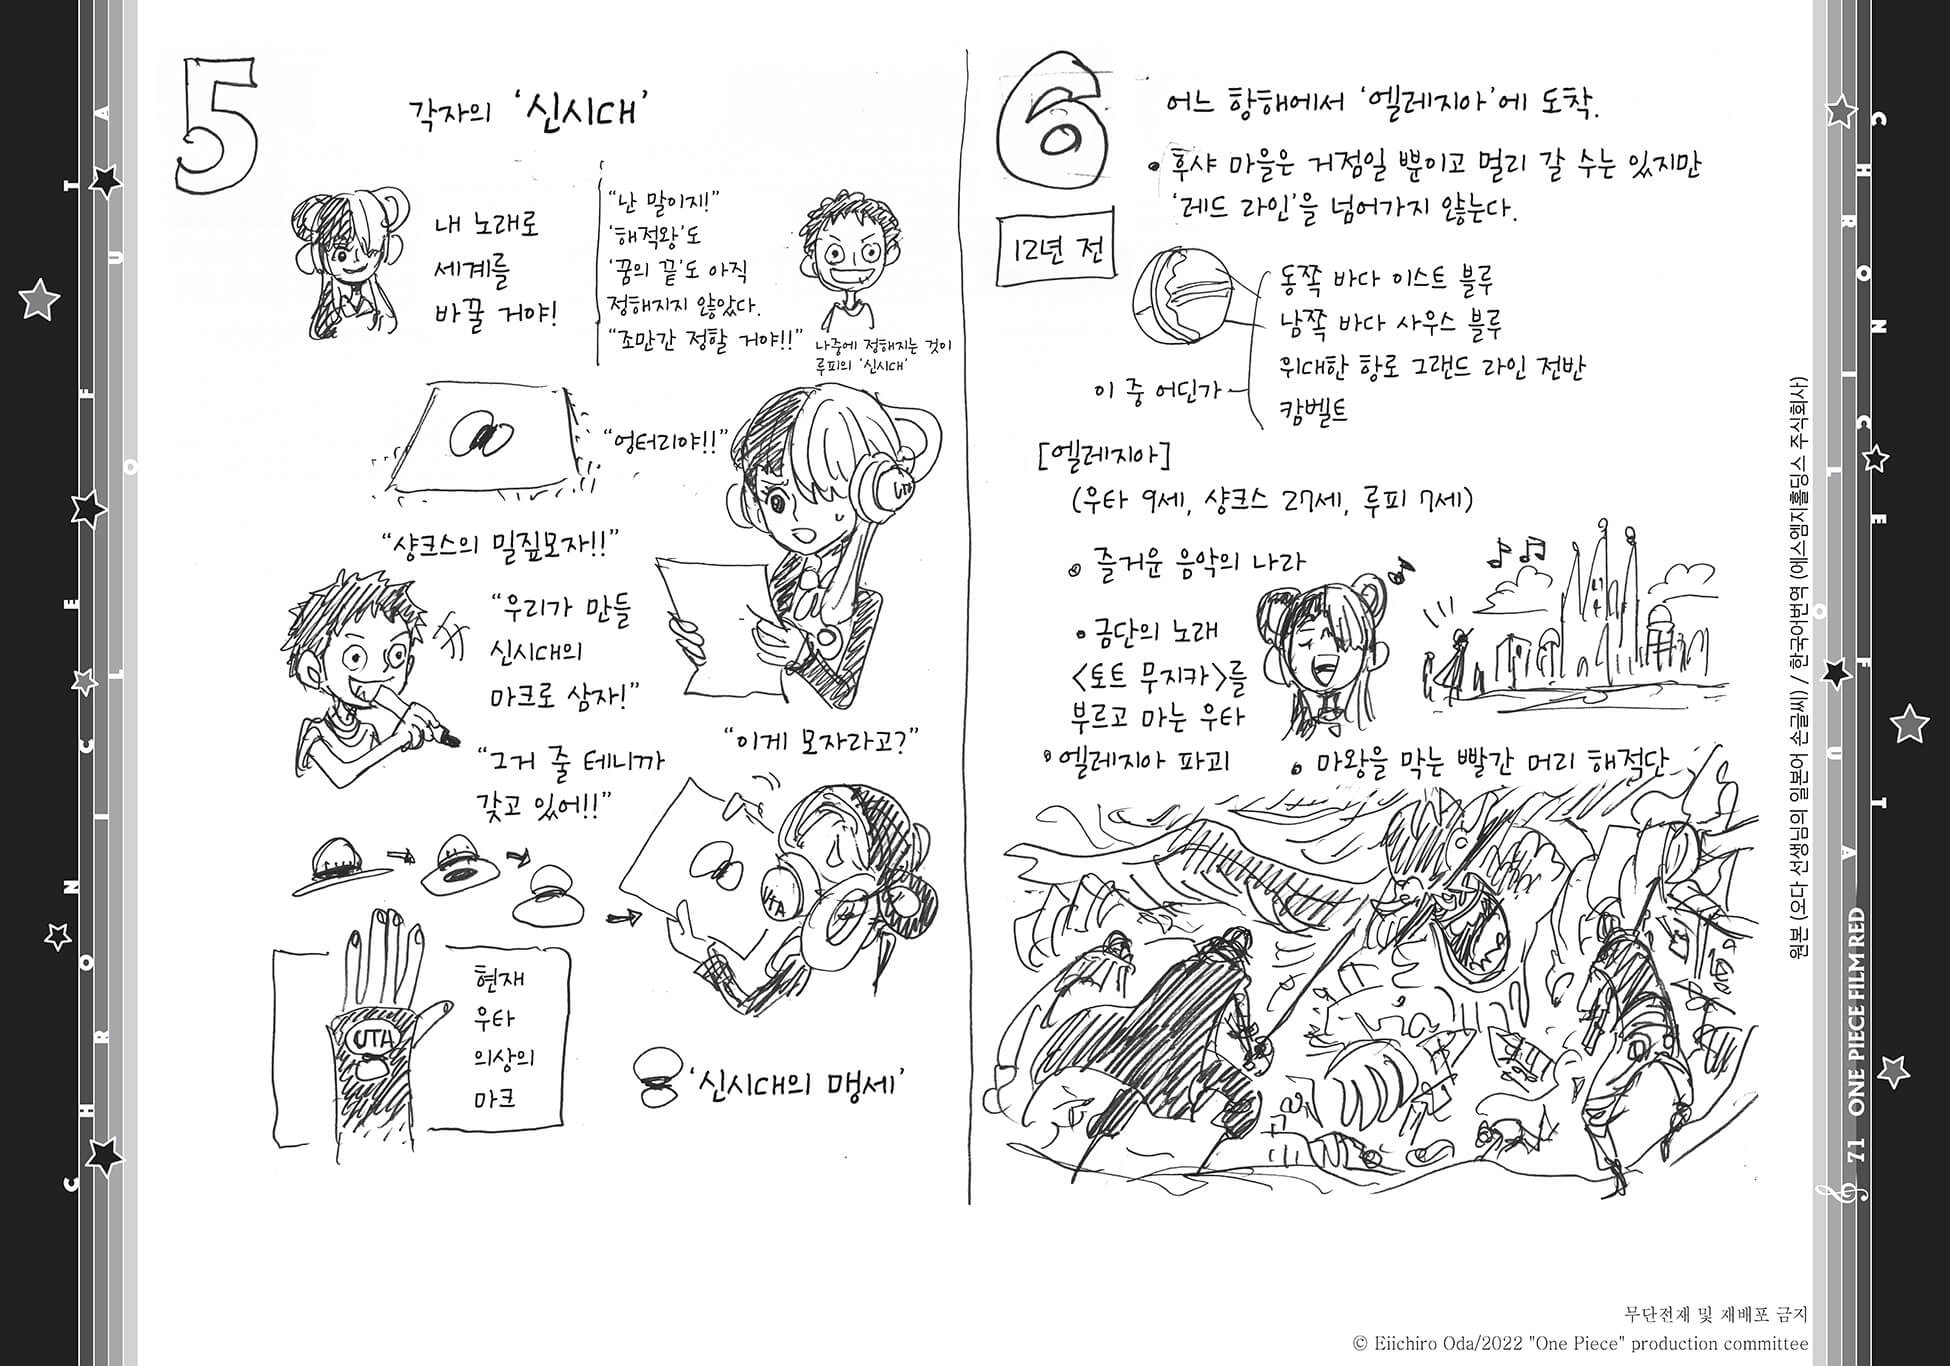 5
각자의 '신시대'
내 노래로
세계를
바꿀 거야!
"난 말이지!"
'해적왕'도
'꿈의 끝'도 아직
정해지지 않았다.
"조만간 정할 거야!!"
나중에 정해지는 것이
루피의 '신시대'
"엉터리야!!"
UTA
"샹크스의 밀짚모자!!"
"우리가 만들
신시대의
마크로 삼자!"
"이게 모자라고?"
"그거 줄 테니까
갖고 있어!!"
UTA
UTA
현재
우타
의상의
마크
'신시대의 맹세'
6
어느 항해에서 '엘레지아'에 도착.
• 후샤 마을은 거점일 뿐이고 멀리 갈 수는 있지만
'레드 라인'을 넘어가지 않는다.
12년 전
동쪽 바다 이스트 블루
남쪽 바다 사우스 블루
위대한 항로 그랜드 라인 전반
캄벨트
이 중 어딘가
[엘레지아]
(우타 9세, 샹크스 27세, 루피 7세)
• 즐거운 음악의 나라
• 금단의 노래
<토트 무지카>를
부르고 마는 우타
• 엘레지아 파괴
• 마왕을 막는 빨간 머리 해적단
CHRONICLE OF UTA
CHRONICLE OF UTA
원본 (오다 선생님의 일본어 손글씨) / 한국어번역 (에스엠지홀딩스 주식회사)
71 ONE PIECE FILM RED
무단전재 및 재배포 금지
© Eiichiro Oda/2022 "One Piece" production committee